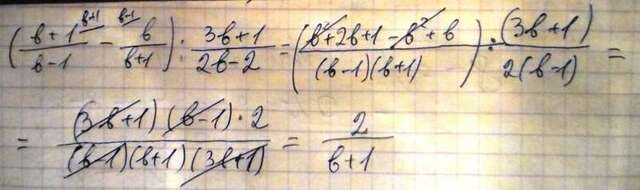 (b+1^{b+1}/b-1 - b^{b-1}/b+1) : 3b+1/2b-2 = (b²+2b+1-b²+b/(b-1)(b+1)) : (3b+1)/2(b-1) =
= (3b+1)(b-1)·2/(b-1)(b+1)(3b+1) = 2/b+1